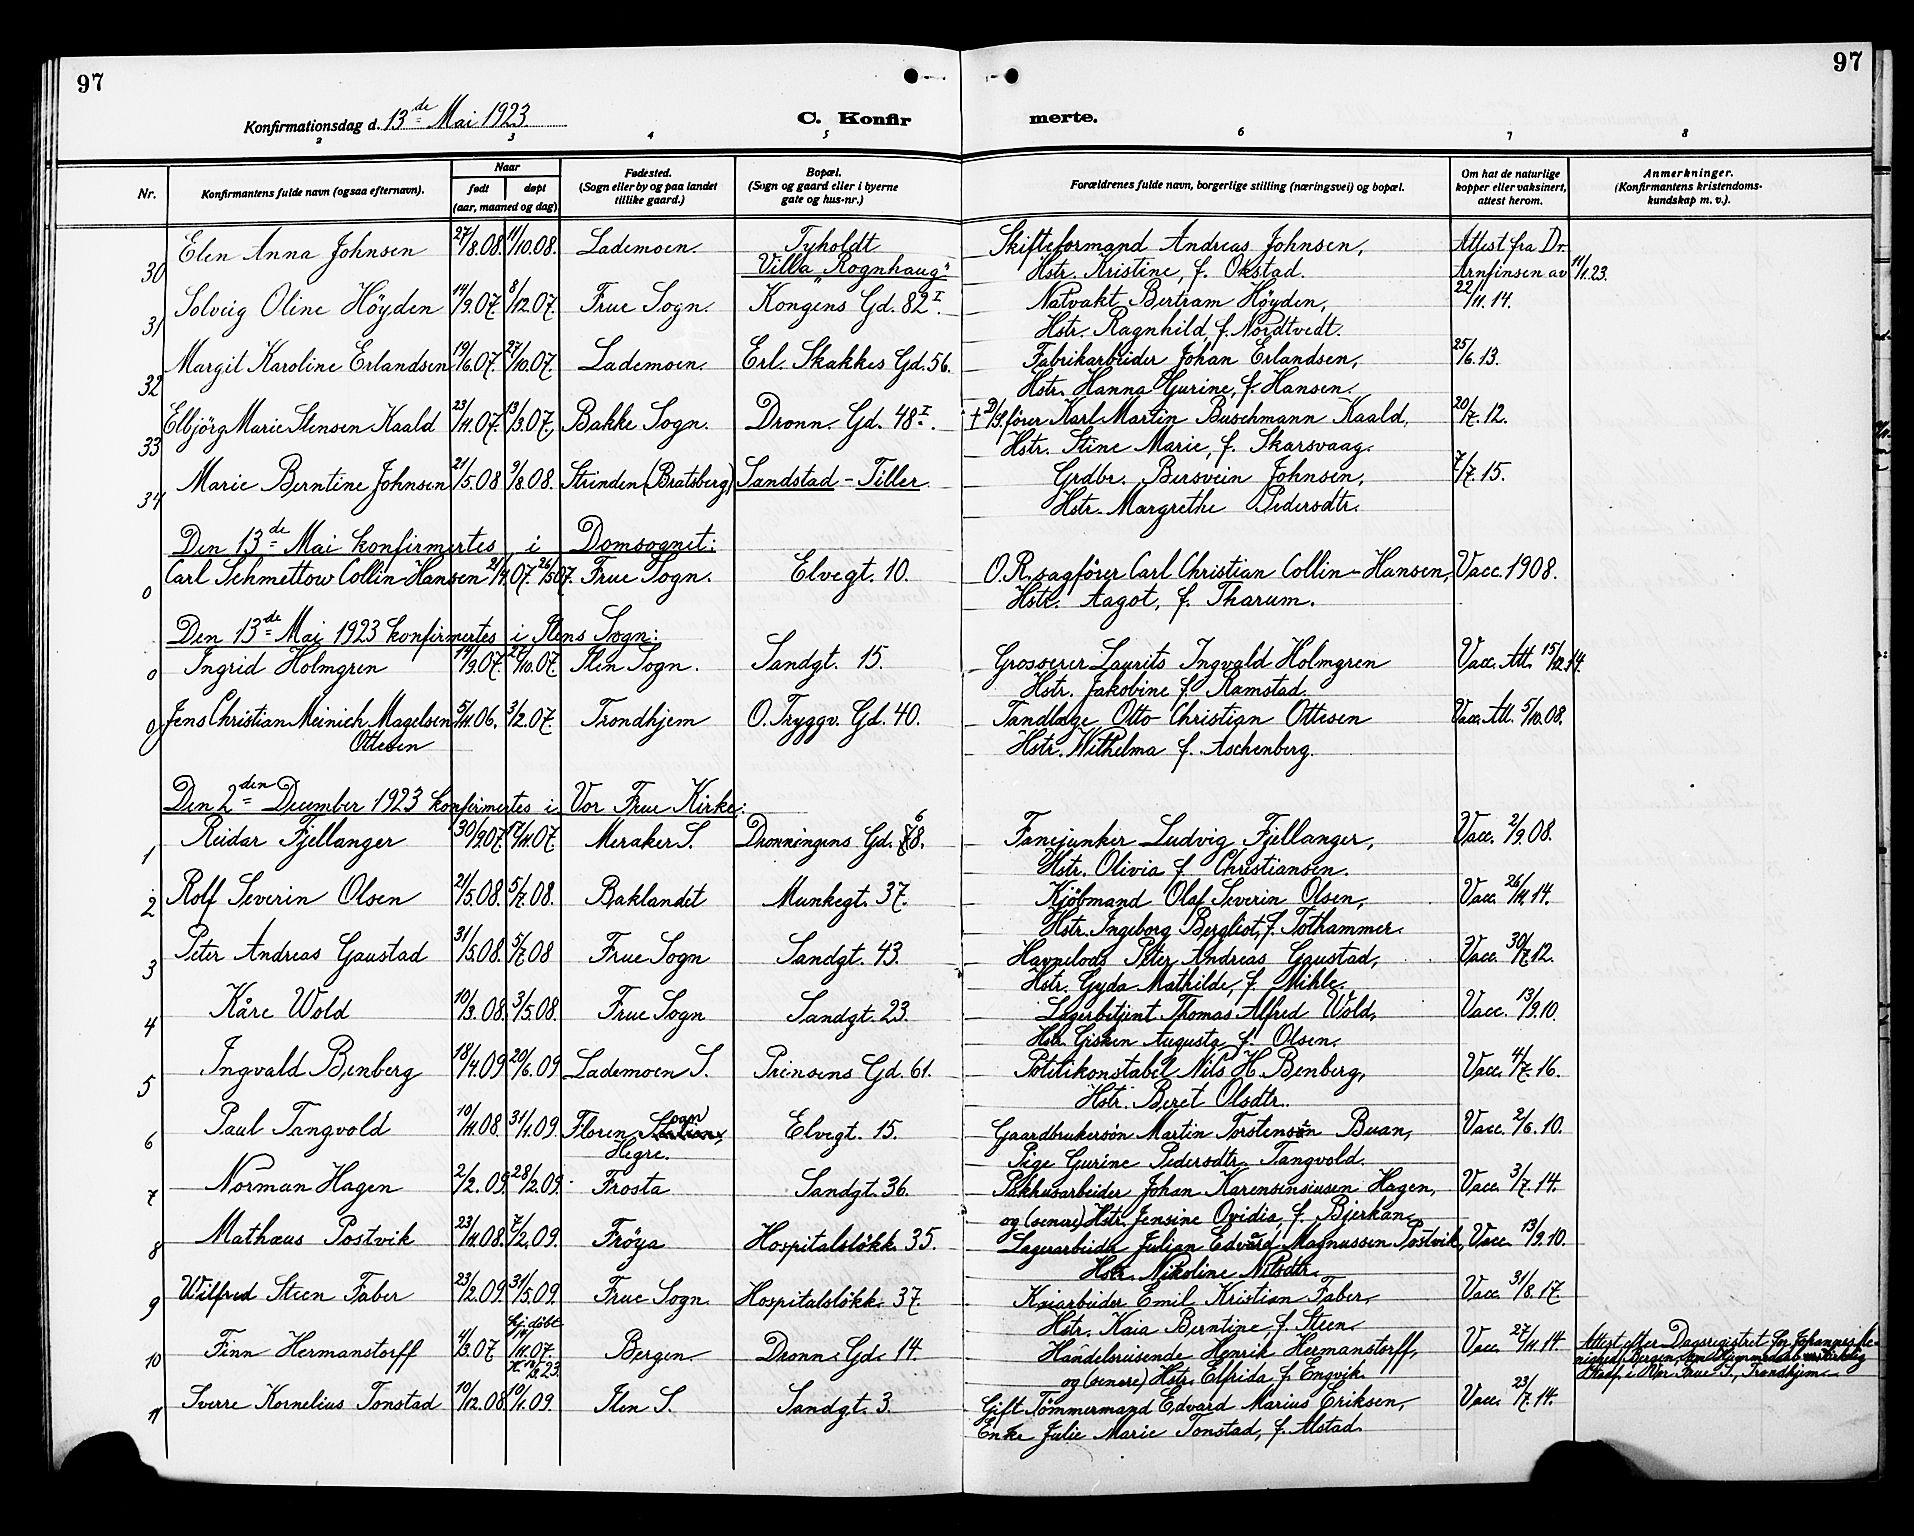 97
97
Konfirmationsdag d. 13de Mai 1923
C. Konfir merte.
2 3 4 5 6 7 8
Nr.
Konfirmantens fulde navn (ogsaa efternavn).
Naar
født
døpt
(aar, maaned og dag)
Fødested.
(Sogn eller by og paa landet
tillike gaard.)
Bopæl.
(Sogn og gaard eller i byerne
gate og hus-nr.)
Forældrenes fulde navn, borgerlige stilling (næringsvei) og bopæl.
Om hat de naturlige
kopper eller vaksinert,
attest herom.
Anmerkninger.
(Konfirmantens kristendoms-
kundskap m. v.).
30 Elen Anna Johnsen 27/8.08. 11/10.08. Lademoen. Tyholdt Skifteformand Andreas Johnsen, Attest fra Dr.
Villa „Rognhaug" Hstr. Kristine, f. Okstad. Arnfinsen av 11/1.23.
31 Solveig Oline Höyden 14/9.07. 8/12.07. Frue Sogn. Kongens Gd. 82 I. Natvakt Bertram Höyden, 22/11.14.
Hstr. Ragnhild, f. Nordtvedt.
32 Margit Karoline Erlandsen 19/6.07. 27/10.07. Lademoen. Erl. Skakkes Gd. 56. Fabrikarbeider Johan Erlandsen, 25/6.13.
Hstr. Hanna Gurine, f. Hansen.
33 Elbjörg Marie Stensen Kaald 23/11.07. 13/3.07. Bakke Sogn. Dronn. Gd. 48 I. † D/S.förer Karl Martin Buschmann Kaald, 20/7.12.
Hstr. Stine Marie, f. Skarsvaag.
34 Marie Berntine Johnsen 21/5.08 9/8.08. Strinden (Bratsberg) Sandstad - Tiller. Grdbr. Bersvein Johnsen, 7/7.15.
Hstr. Margrethe Pedersdtr.
Den 13de Mai konfirmertes i Domsognet:
0 Carl Schmettow Collin-Hansen 21/4.07. 26/5.07. Frue Sogn. Elvegt. 10. O.R.sagförer Carl Christian Collin-Hansen, Vacc. 1908.
Hstr. Aagot, f. Tharum.
Den 13de Mai 1923 konfirmertes i Ilens Sogn:
0 Ingrid Holmgren 14/9.07. 27/10.07. Ilen Sogn. Sandgt. 15. Grosserer Laurits Ingvald Holmgren Vacc. Att. 15/12.14.
Hstr. Jakobine f. Ramstad.
0 Jens Christian Meinich Magelsen 5/11.06. 3/2.07. Trondhjem O. Tryggv. Gd. 40. Tandlæge Otto Christian Ottesen Vacc. Att. 5/10.08.
Ottesen Hstr. Wilhelma f. Aschenberg.
Den 2den December 1923 konfirmertes i Vor Frue Kirke:
1 Reidar Fjellanger 30/9.07. 17/11.07. Meraker S. Dronningens Gd. 68. Fanejunker Ludvig Fjellanger, Vacc. 2/9.08.
Hstr. Olivia f. Christiansen.
2 Rolf Severin Olsen 21/5.08. 5/7.08. Baklandet Munkegt. 37. Kjöbmand Olaf Severin Olsen, Vacc. 26/11.14.
Hstr. Ingeborg Bergliot, f. Tothammer.
3 Peter Andreas Gaustad 31/5.08. 5/7.08 Frue Sogn Sandgt. 43. Havnelods Peter Andreas Gaustad, Vacc. 30/7.12.
Hstr. Gyda Mathilde, f. Mihle.
4 Kåre Wold 10/3.08. 3/5.08. Frue Sogn Sandgt. 23. Lagerbetjent Thomas Alfred Wold, Vacc. 13/9.10.
Hstr. Gisken Augusta f. Olsen.
5 Ingvald Benberg 18/4.09 20/6.09 Lademoen S. Prinsens Gd. 61. Politikonstabel Nils H. Benberg, Vacc. 4/7.16.
Hstr. Beret Olsdtr.
6 Paul Tangvold 10/11.08. 31/1.09. Floren Sogn Elvegt. 15. Gaardbrukersön Martin Torstensön Buan, Vacc. 2/6.10.
Hegre. Pige Gurine Pedersdtr. Tangvold.
7 Norman Hagen 2/2.09. 28/2.09. Frosta Sandgt. 36. Pakhusarbeider Johan Karensensiusen Hagen, Vacc. 3/7.14.
og (senere) Hstr. Jensine Ovidia, f. Bjerkan.
8 Mathæus Postvik 23/11.08. 7/2.09. Fröya Hospitalslökk. 35. Lagerarbeider Julian Edvard Magnussen Postvik, Vacc. 13/9.10.
Hstr. Nikoline Nilsdtr.
9 Wilfred Steen Faber 23/2.09. 31/5.09. Frue Sogn. Hospitalslökk. 37. Kaiarbeider Emil Kristian Faber, Vacc. 31/8.17.
Hstr. Kaia Berntine, f. Steen.
10 Finn Hermanstorff 4/3.07 hj. döbt 14/11.07. Bergen. Dronn. Gd. 14. Handelsreisende Henrik Hermanstorff, Vacc. 27/11.14. Attest efter Dagsregistret for Johannes Me-
og (senere) Hstr. Elfrida, f. Engvik. nighed, Bergen,
i Vor Frue S., Trondhjem.
11 Sverre Kornelius Tonstad 10/12.08. 10/1.09. Ilen S. Sandgt. 3. Gift Tömmermand Edvard Marius Eriksen, Vacc. 23/7.14.
Enke Julie Marie Tonstad, f. Alstad.